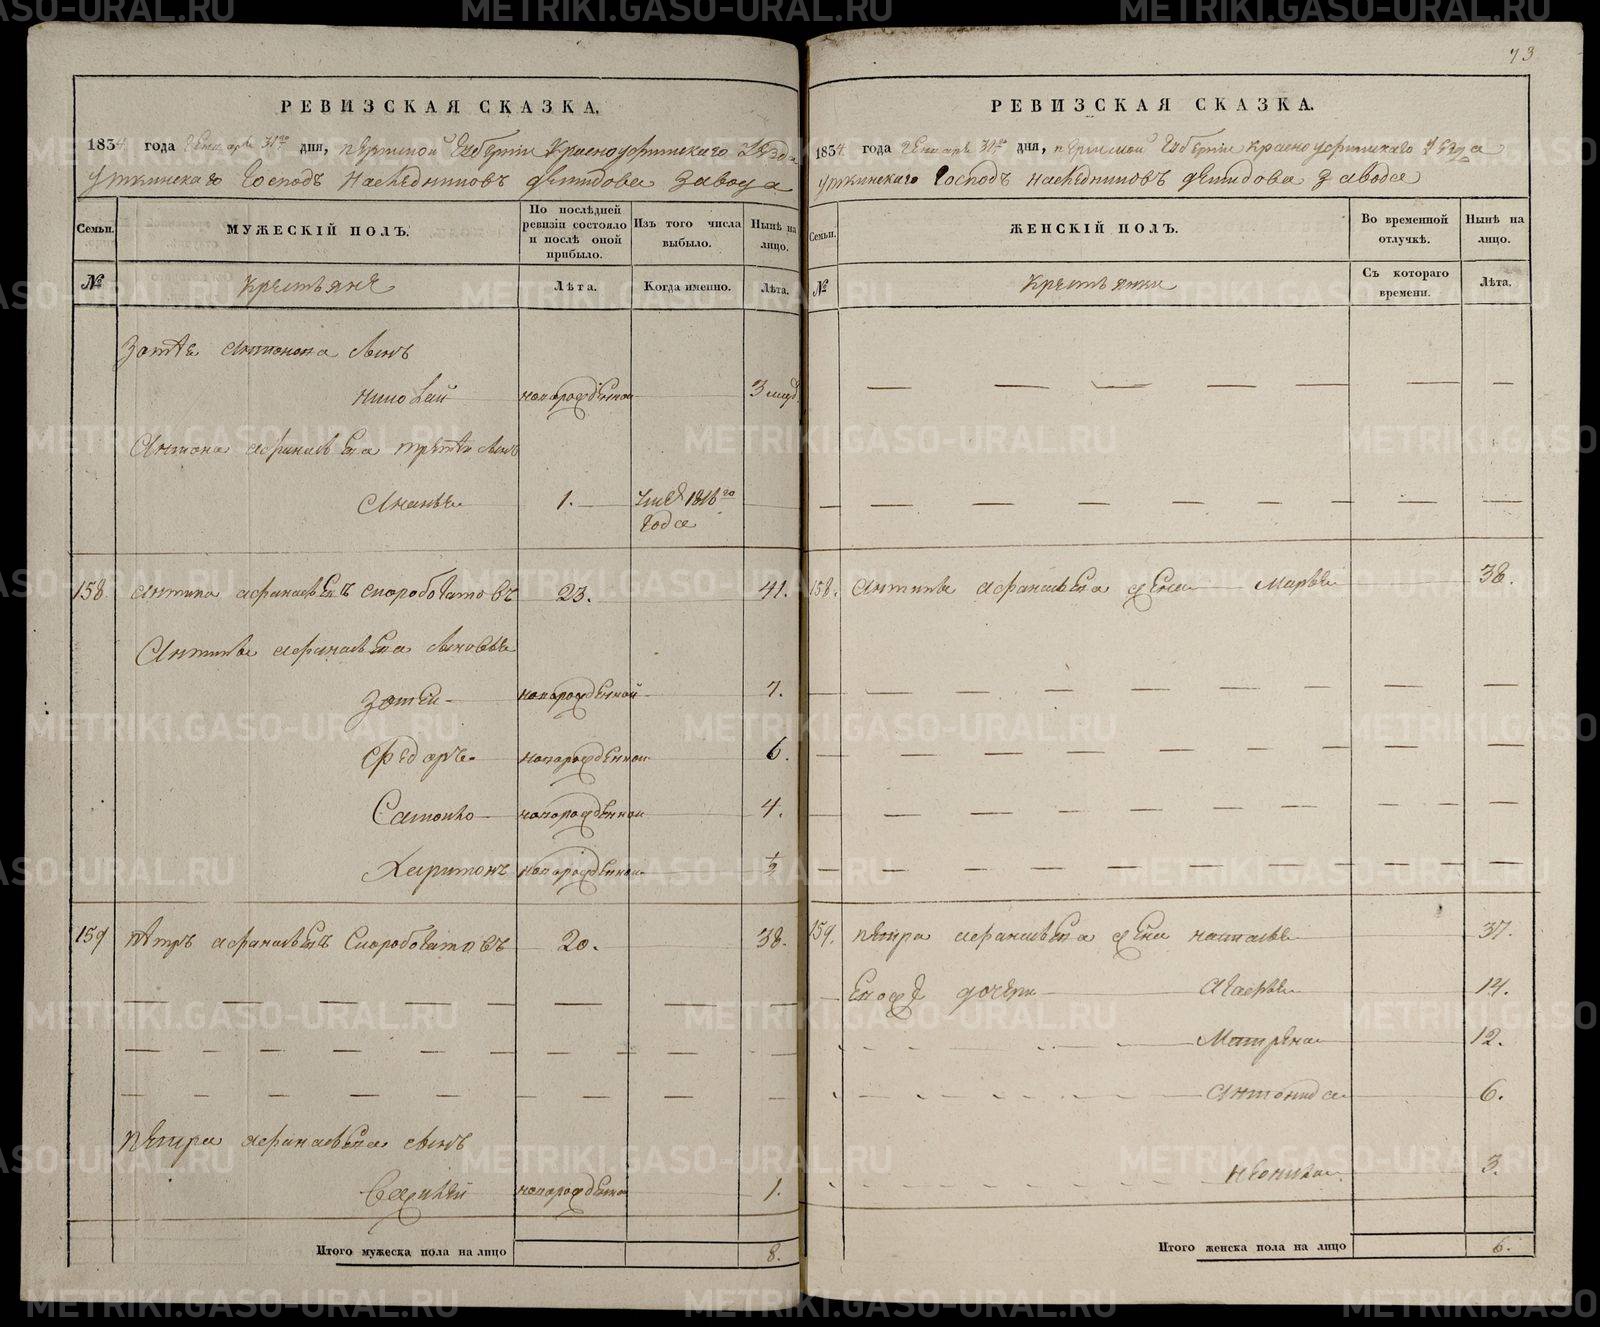 73
РЕВИЗСКАЯ СКАЗКА.
1834 года Генваря 31го дня, Пермской Губернии Красноуфимскаго Уезда
Уткинскаго Господъ наследниковъ Демидова завода
Семьи.
МУЖЕСКІЙ ПОЛЪ.
По послѣдней ревизіи состояло и послѣ оной прибыло.
Изъ того числа выбыло.
Нынѣ на лицо.
№
Крестьяне
Лѣта.
Когда именно.
Лѣта.
Зотѣя Антонова сынъ
Николай новорожденной 3 мѣс
Антона Афанасьева третей сынъ
Ананья 1. умеръ 1816го
года
158 Антипа Афанасьевъ Скоробогатовъ 23. 41.
Антипы Афанасьева сыновья
Зотей новорожденной 7.
Федоръ новорожденной 6.
Самойло новорожденной 4.
Харитонъ новорожденной 1/2
159 Петръ Афанасьевъ Скоробогатовъ 20. 38.
Петра Афанасьева сынъ
новорожденной 1.
Итого мужеска пола на лицо 8.
РЕВИЗСКАЯ СКАЗКА.
1834 года Генваря 31го дня, Пермской Губернии Красноуфимскаго Уезда
Уткинскаго Господъ наследниковъ Демидова завода
Семьи.
ЖЕНСКІЙ ПОЛЪ.
Во временной отлучкѣ.
Нынѣ на лицо.
№
Крестьянки
Съ котораго времени.
Лѣта.
158. Антипы Афанасьева жена Марья 38.
159. Петра Афанасьева жена Наталья 37.
Евож дочери Агафья 14.
Матрена 12.
Антонида 6.
Неонила 3.
Итого женска пола на лицо 6.
METRIKI.GASO-URAL.RU